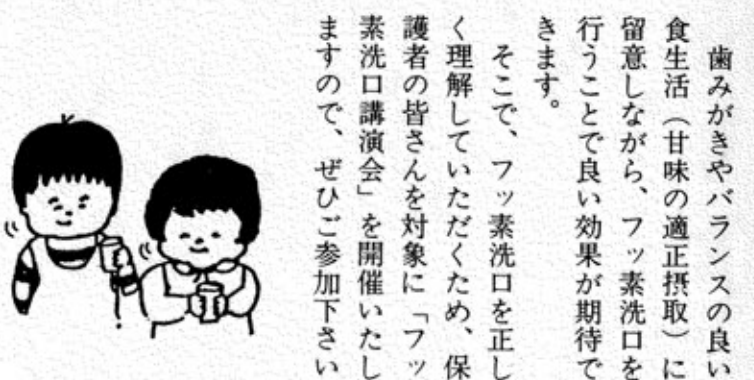 歯みがきやバランスの良い
食生活（甘味の適正摂取）に
留意しながら、フッ素洗口を
行うことで良い効果が期待で
きます。
そこで、フッ素洗口を正し
く理解していただくため、保
護者の皆さんを対象に「フッ
素洗口講演会」を開催いたし
ますので、ぜひご参加下さい